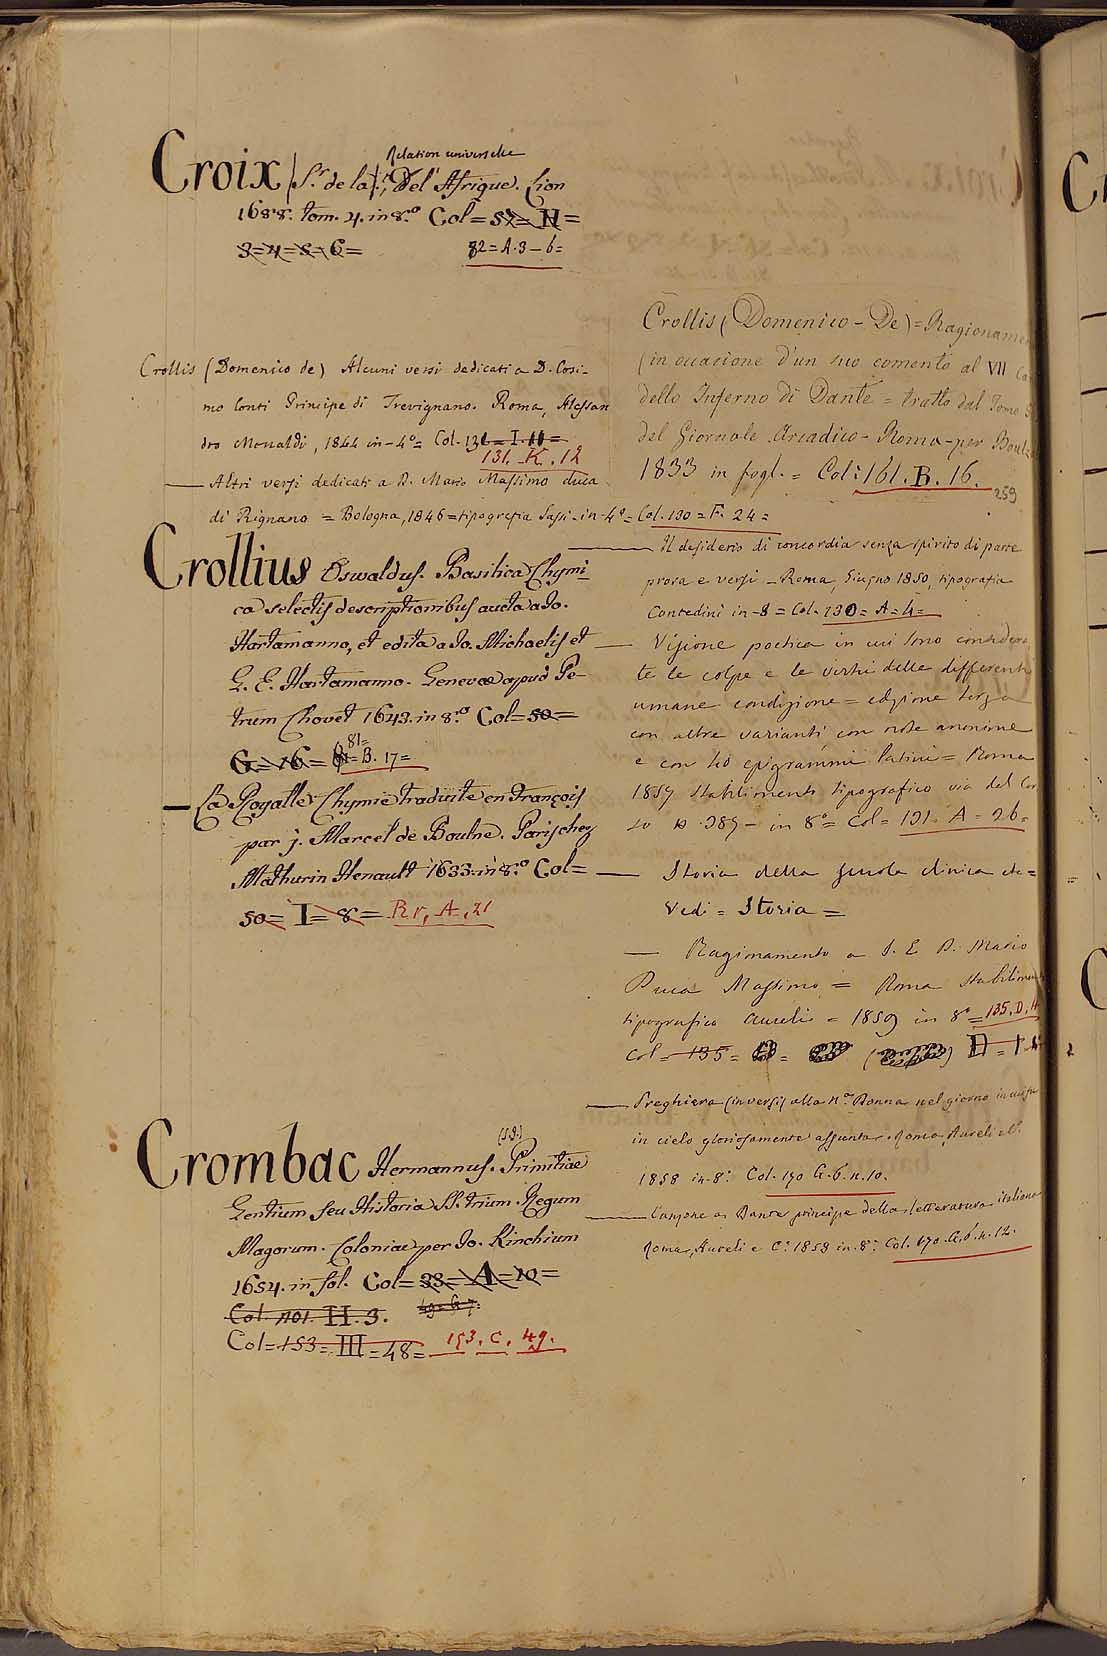 Relation universelle
Croix (S.r de la), Del' Afrique. Lion
1688. tom. 4. in 8.º Col = 51 = H =
3=4=5=6=
82=A.3-6=
Crollis (Domenico de) Alcuni versi dedicati a D. Cosi-
mo Conti Principe di Trevignano. Roma, Alessan
dro Monaldi, 1844 in-4º= Col. 131=I.11=
131. K. 12
— Altri versi dedicati a D. Mario Massimo duca
di Rignano = Bologna, 1846=tipografia Sassi-in-4º=Col.130=F. 24=
Crollius Oswaldus. Basilica Chymi-
ca selectis descriptionibus aucta a Jo.
Hartamanno, et edita a Jo. Michaelis et
G. E. Hartamanno. Genevae apud Pe-
trum Chovet 1643. in 8.º Col=50=
G=16=
81=B. 17=
— La Royalle Chymie traduite en François
par J. Marcel de Boulne. Paris chez
Mathurin Henault 1633. in 8.º Col=
50=I=8= Rr. A. 21
(S.J.)
Crombac Hermannus. Primitiae
Gentium seu Historia SS. trium Regum
Magorum. Coloniae per Jo. Kinchium
1654. in fol. Col=33=A=10=
Col. 101. H. 3. 49=G 7.
Col=153=III=48= 153. C. 49.
Crollis (Domenico-De)=Ragioname
(in occasione d'un suo comento al VII
dello Inferno di Dante = tratto dal Tomo
del Giornale Arcadico-Roma-per Boulz
1833 in fogl.= Col: 161. B. 16.
259
— Il desiderio di concordia senza spirito di parte
prosa e versi-Roma, Giugno 1850, tipografia
Contedini in-8=Col. 130=A=4=
— Visione poetica in cui sono considera
te le colpe e le virtù delle differenti
umane condizione=edizione terza
con altre varianti con note anonime
e con 40 epigrammi latini=Roma
1857 Stabilimento tipografico via del Cor
so n. 389-in 8º=Col=131. A=26=
— Storia della scuola clinica etc=
Vedi=Storia=
— Ragionamento a S. E D. Mario
Duca Massimo= Roma Stabilimen
tipografico Aureli=1859 in 8º=135. D. H
Col=135= D=I
— Preghiera (in versi) alla N.ª Donna nel giorno in cui fu
in cielo gloriosamente assunta. Roma, Aureli e C.
1858 in-8º. Col. 170 G. 6. n. 10.
— Canzone a Dante principe della letteratura italiana
Roma, Aureli e C. 1858 in. 8º. Col. 170. G. 6. n. 12.